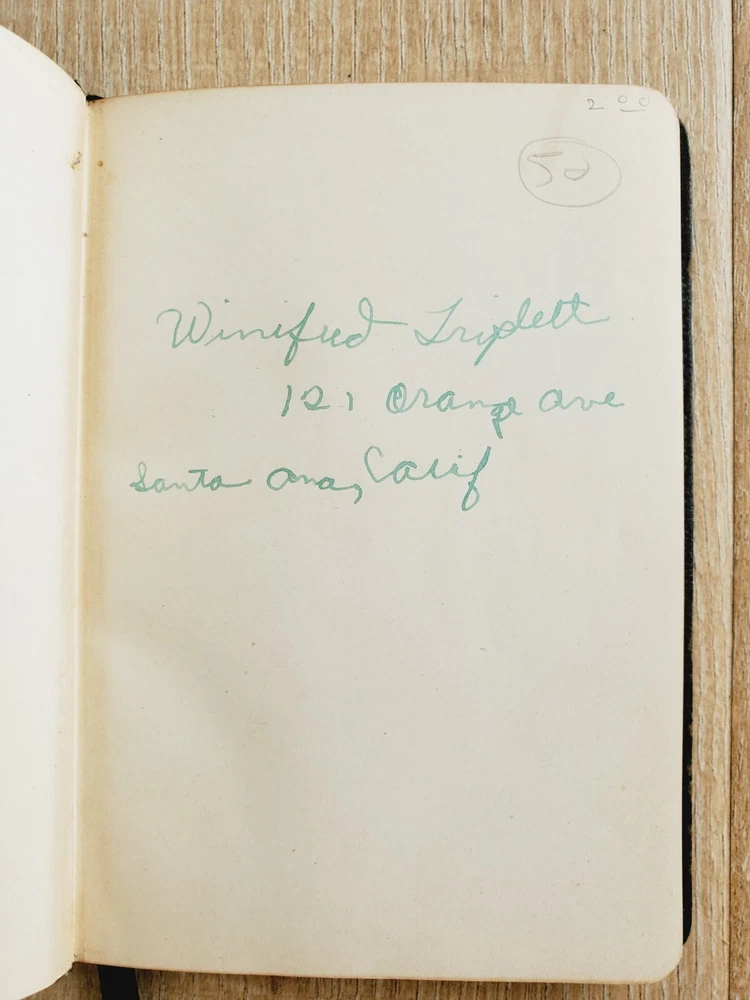 2 00
50
Winifred Triplett
121 Orange Ave
Santa Ana, Calif